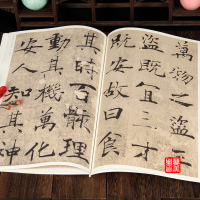 萬物之盜三
盜既宜三才
既安故曰食
其時百骸理
動其機萬化
安人知其神